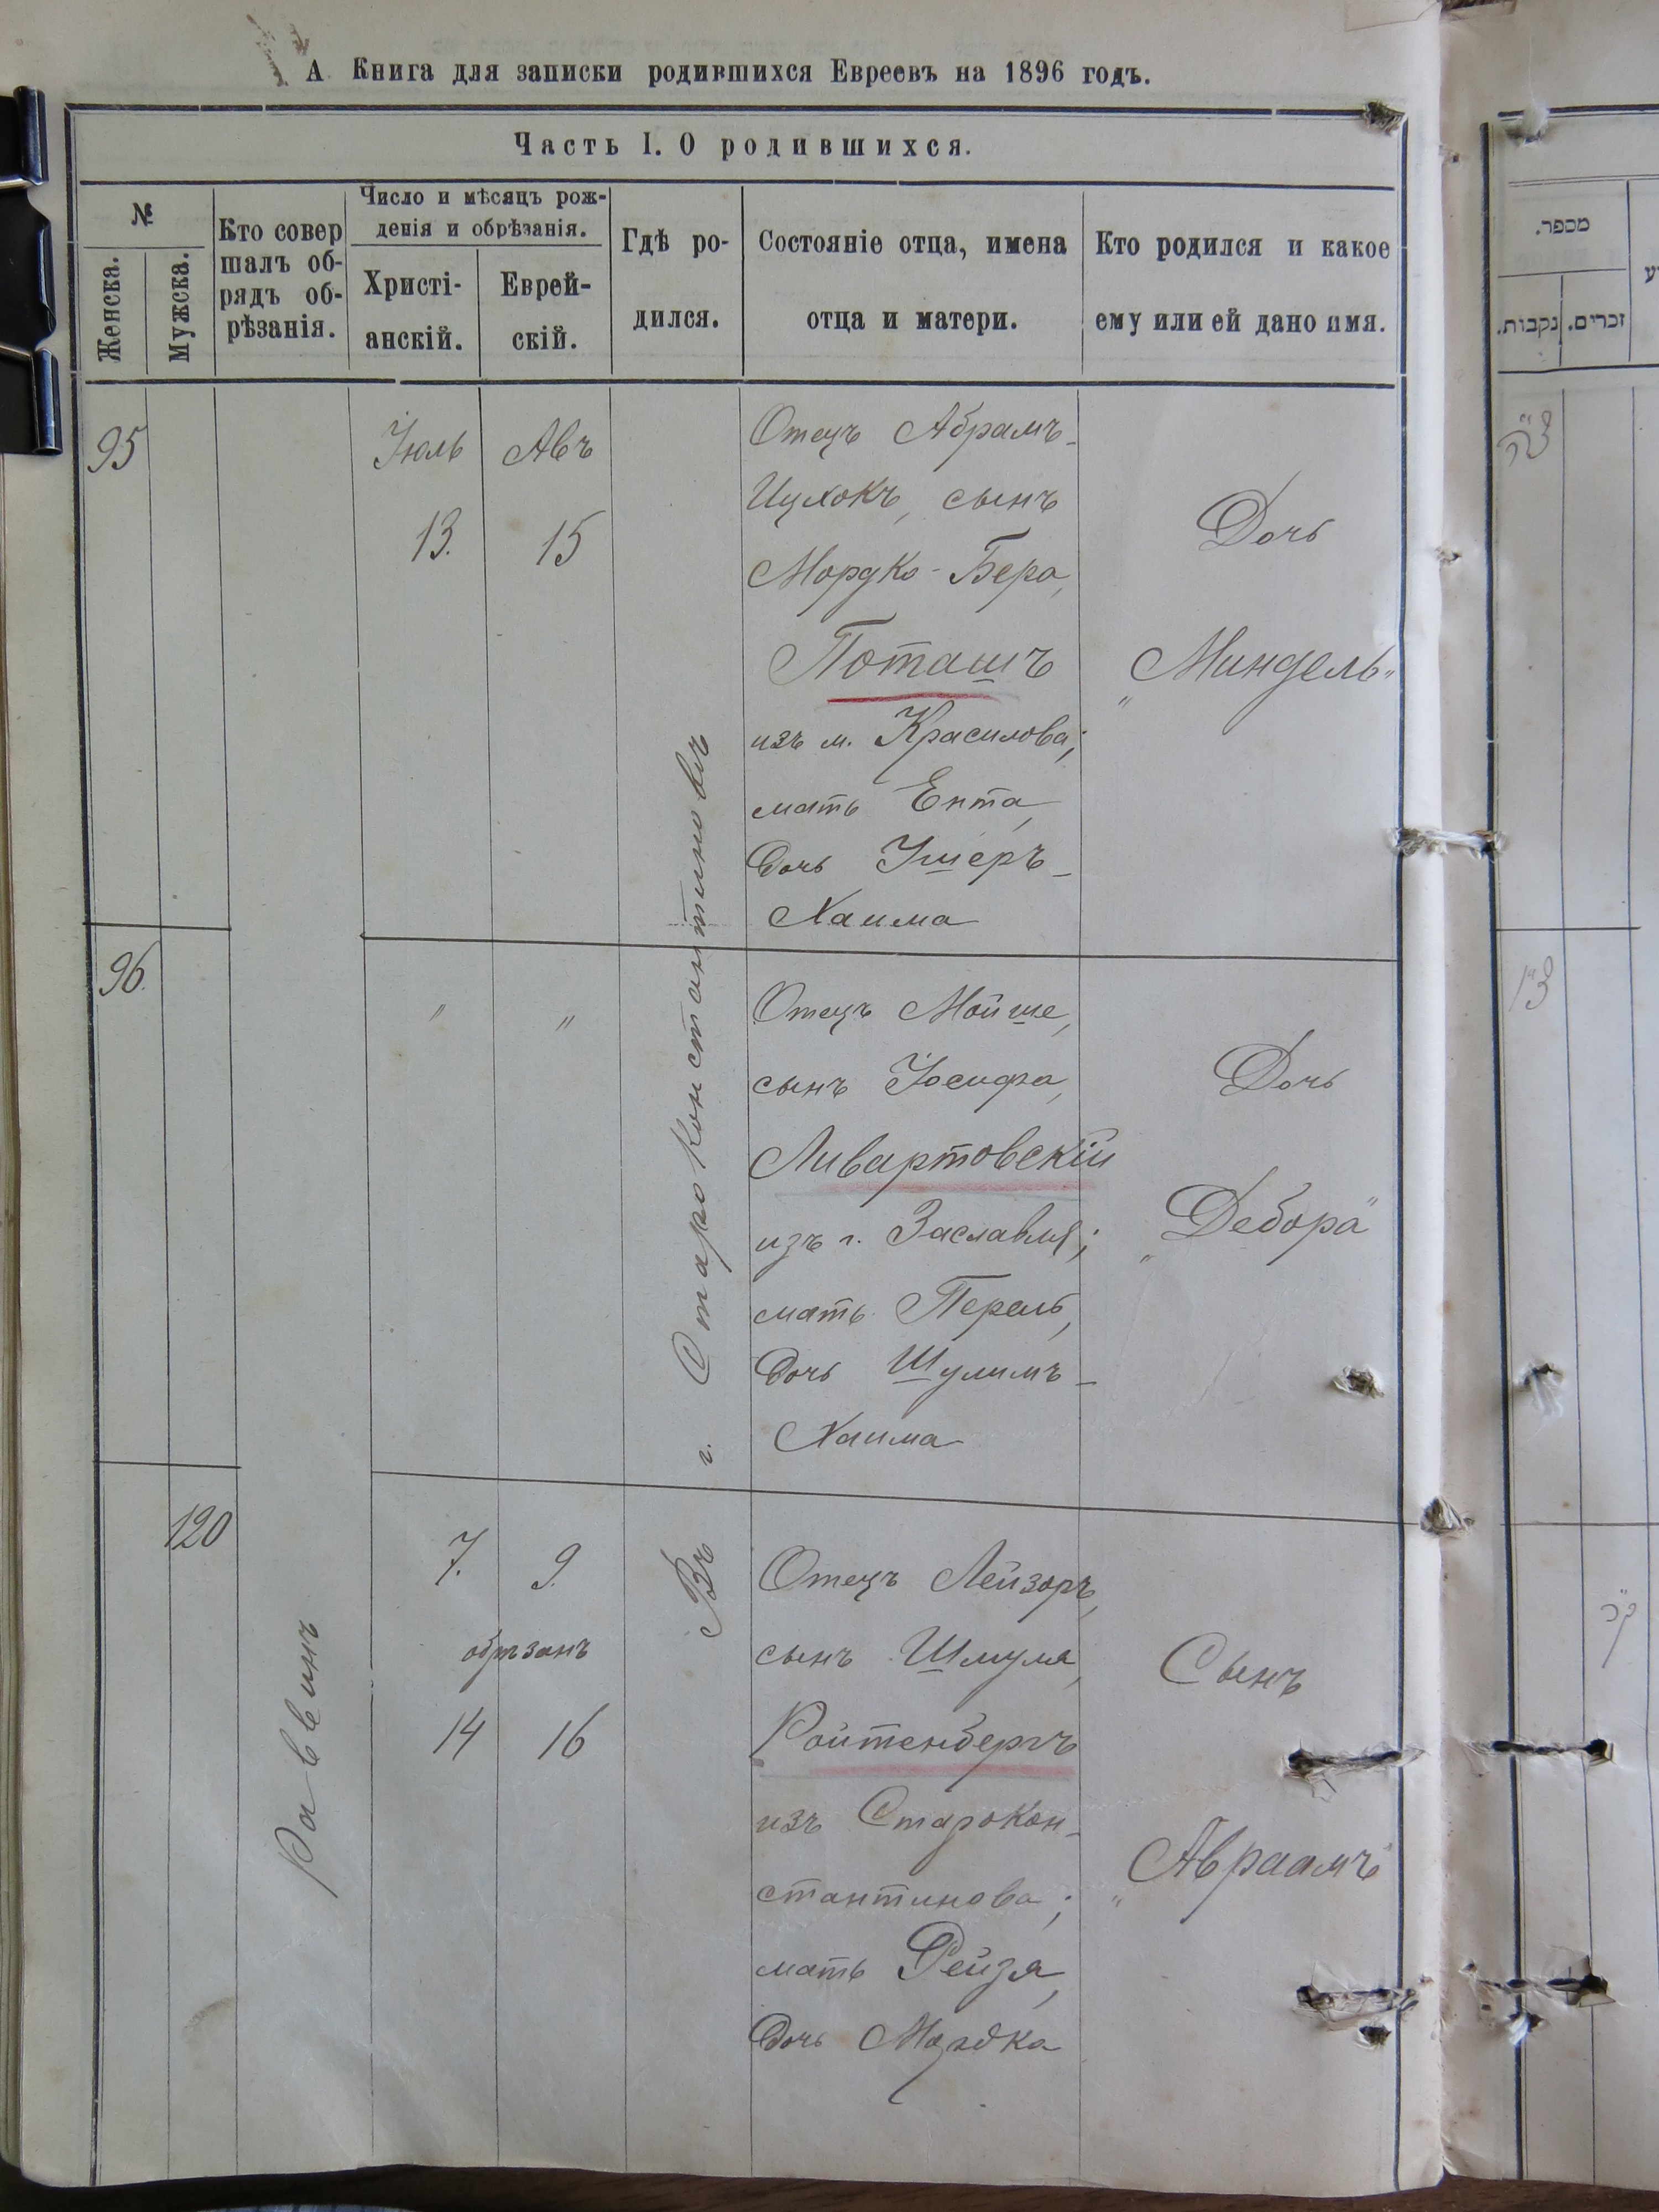 А Книга для записки родившихся Евреевъ на 1896 годъ.
Часть I. О родившихся.
№
Женска.
Мужска.
Кто совер
шалъ об-
рядъ об-
рѣзанія.
Число и мѣсяцъ рож-
денія и обрѣзанія.
Христі-
анскій.
Еврей-
скій.
Гдѣ ро-
дился.
Состояніе отца, имена
отца и матери.
Кто родился и какое
ему или ей дано имя.
95
Іюль
13.
Авъ
15
Отецъ Абрамъ-
Ицхокъ, сынъ
Мордко-Бера,
Поташъ
изъ м. Красилова;
мать Ента,
дочь Ушеръ-
Хаима
Дочь
„Миндель"
96.
"
"
Отецъ Мойше,
сынъ Іосифа,
Ливартовскій
изъ г. Заславля;
мать Перель,
дочь Шулимъ-
Хаима
Дочь
„Дебора"
120
Раввинъ
7.
9.
обрѣзанъ
14
16
Въ г. Староконстантиновѣ
Отецъ Лейзоръ,
сынъ Шмуля,
Ройтенбергъ
изъ Старокон-
стантинова;
мать Рейзя,
дочь Мордка
Сынъ
„Авраамъ"
מספר.
נקבות.
זכרים.
צ״ה
צ״ו
ק״כ